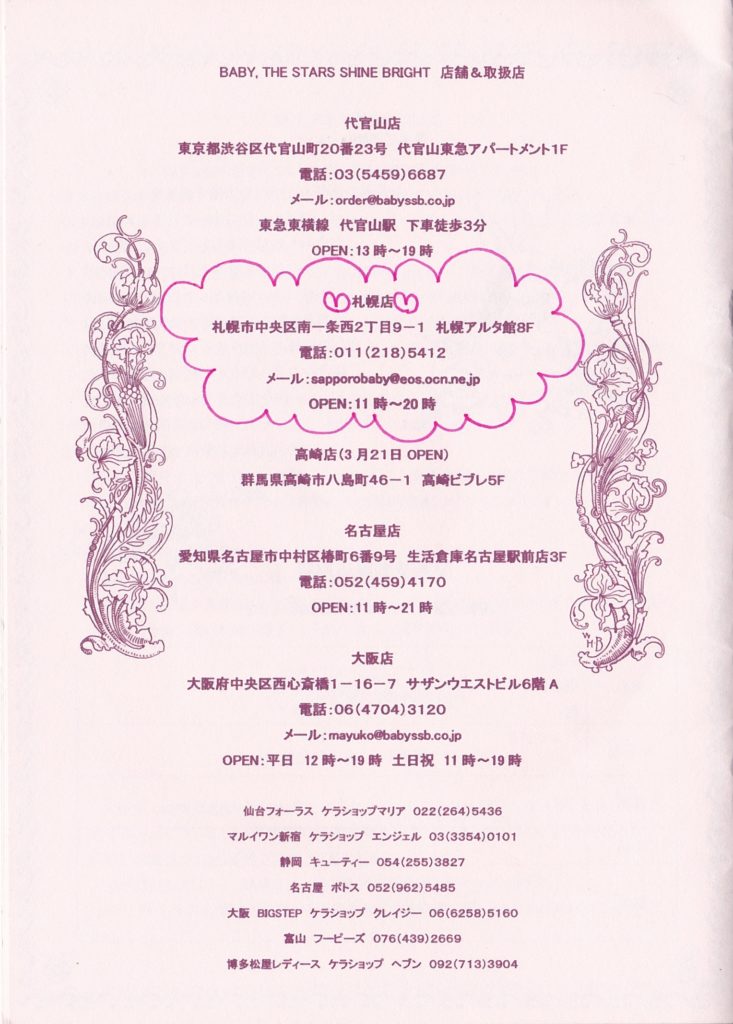 BABY, THE STARS SHINE BRIGHT 店舗＆取扱店
代官山店
東京都渋谷区代官山町20番23号 代官山東急アパートメント1F
電話：03(5459)6687
メール：order@babyssb.co.jp
東急東横線 代官山駅 下車徒歩3分
OPEN：13時～19時
札幌店
札幌市中央区南一条西2丁目9－1 札幌アルタ館8F
電話：011(218)5412
メール：sapporobaby@eos.ocn.ne.jp
OPEN：11時～20時
高崎店(3月21日 OPEN)
群馬県高崎市八島町46－1 高崎ビブレ5F
名古屋店
愛知県名古屋市中村区椿町6番9号 生活倉庫名古屋駅前店3F
電話：052(459)4170
OPEN：11時～21時
WHB
大阪店
大阪府中央区西心斎橋1－16－7 サザンウエストビル6階A
電話：06(4704)3120
メール：mayuko@babyssb.co.jp
OPEN：平日 12時～19時 土日祝 11時～19時
仙台フォーラス ケラショップマリア 022(264)5436
マルイワン新宿 ケラショップ エンジェル 03(3354)0101
静岡 キューティー 054(255)3827
名古屋 ポトス 052(962)5485
大阪 BIGSTEP ケラショップ クレイジー 06(6258)5160
富山 フーピーズ 076(439)2669
博多松屋レディース ケラショップ ヘブン 092(713)3904